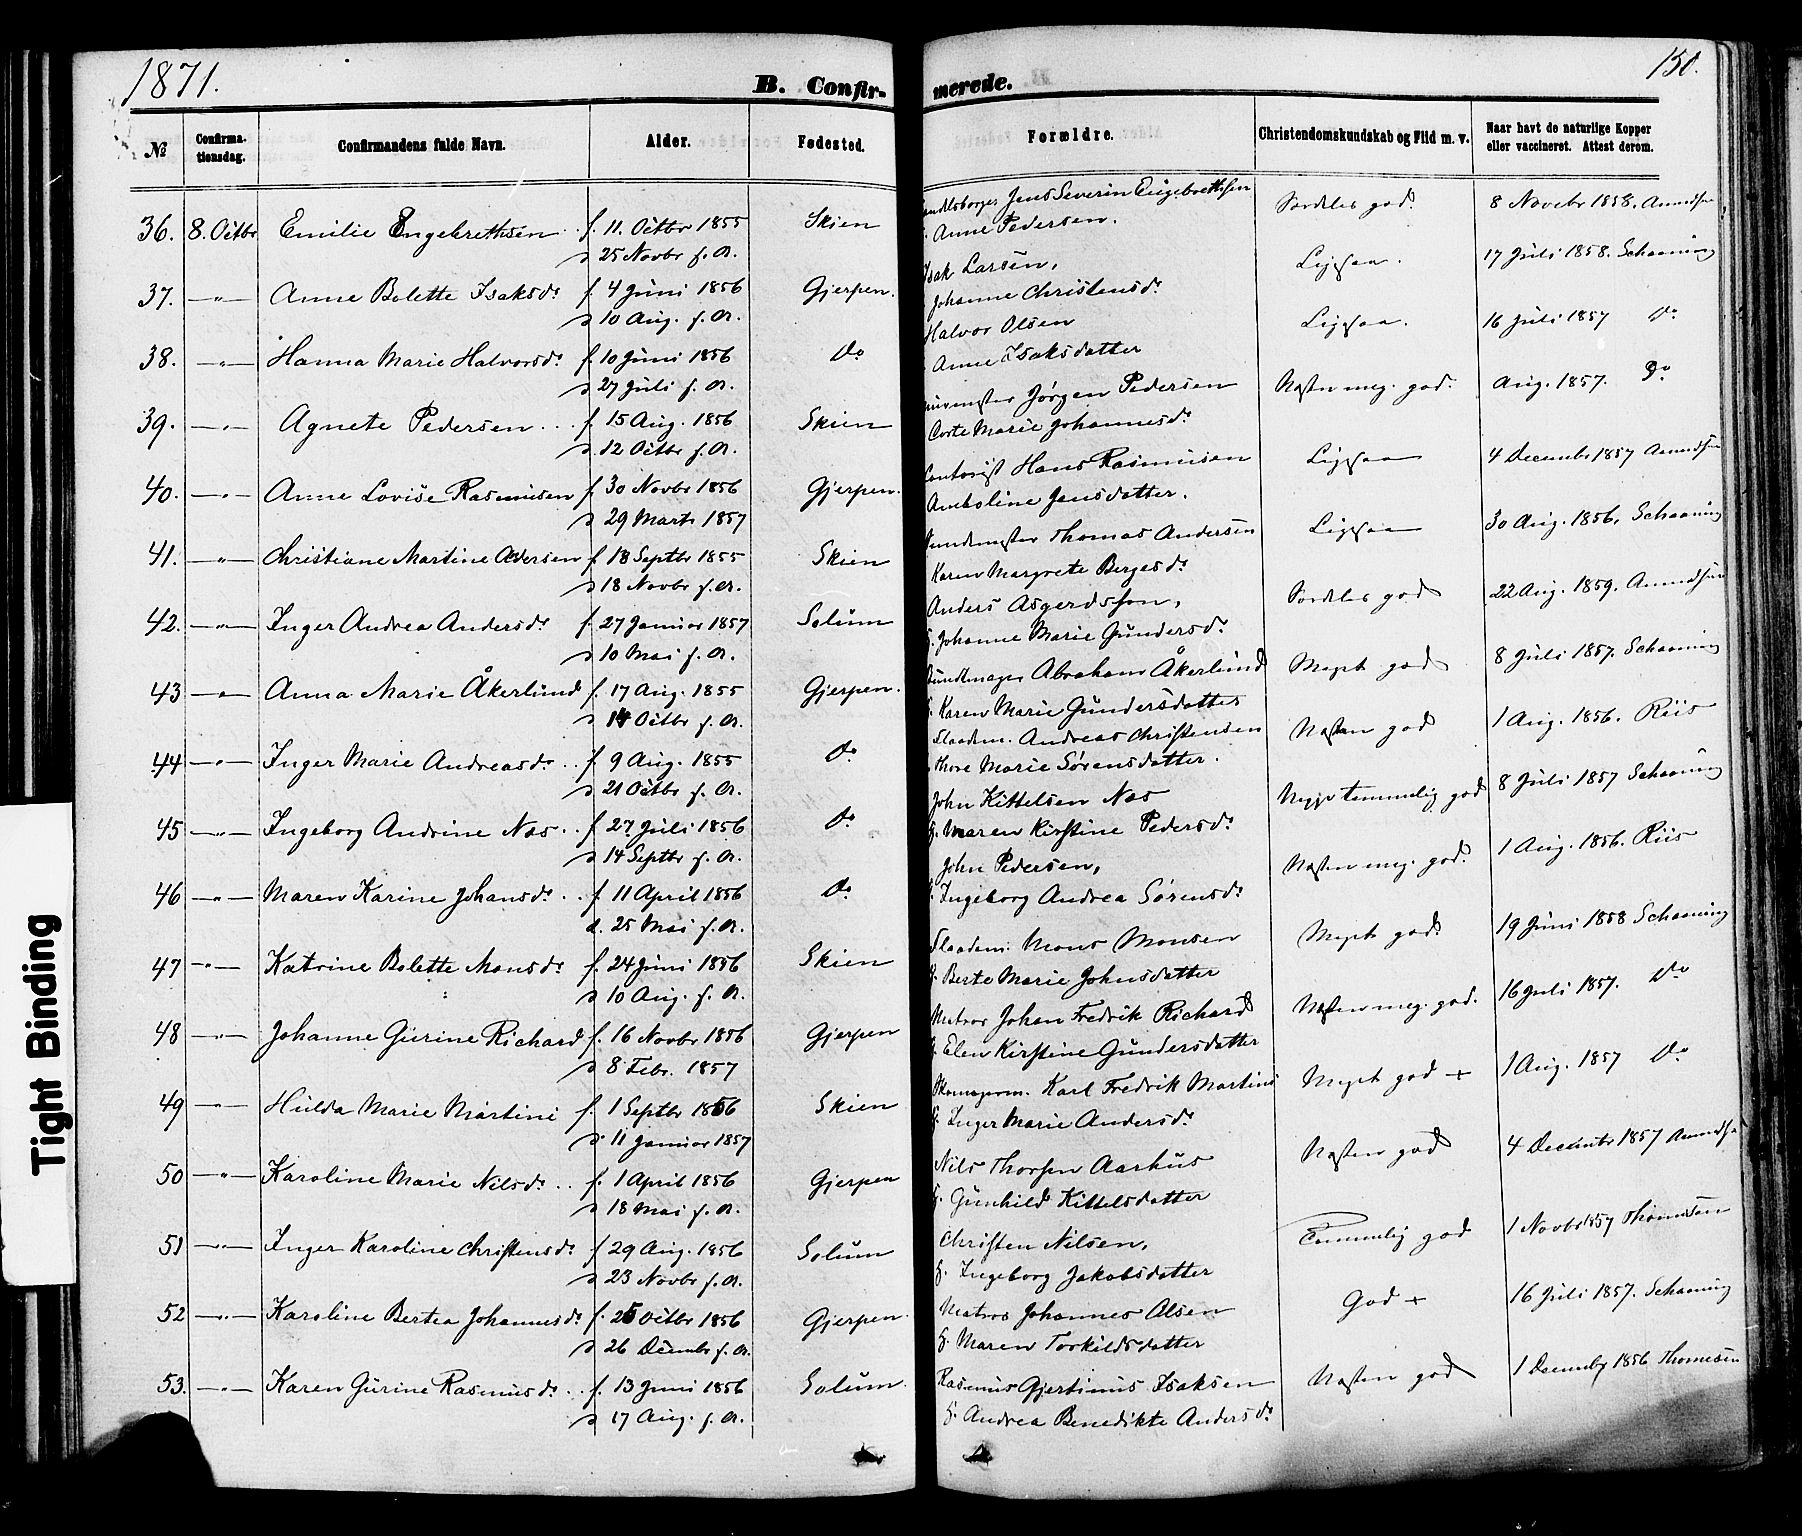 1871.
B. Confir-
№ Confirma-
tionsdag. Confirmandens fulde Navn. Alder. Fødested.
36. 8. Octbr Emilie Engebrethsen f. 11. Octbr 1855 Skien
d 25 Novbr s. A.
37. —"— Anne Bolette Isaksd. f. 4 Juni 1856 Gjerpen.
d 10 Aug. s. A.
38. —"— Hanna Marie Halvorsd. f. 10 Juni 1856 do
d 27 Juli s. A.
39. —"— Agnete Pedersen f. 15 Aug. 1856 Skien
d 12 Octbr s. A.
40. —"— Anne Lovise Rasmusen f. 30 Novbr 1856 Gjerpen.
d 29 Marts 1857
41. —"— Christiane Martine Andersen f. 18 Septbr 1855 Skien
d 18 Novbr s. A.
42. —"— Inger Andrea Andersd. f. 27 Januar 1857 Solum
d 10 Mai s. A.
43 —"— Anna Marie Åkerlund f. 17 Aug. 1855 Gjerpen.
d 14 Octbr s. A.
44 —"— Inger Marie Andreasd. f 9 Aug. 1855 do
d 21 Octbr s. A.
45 —"— Ingeborg Andrine Næs f. 27 Juli 1856 do
d 14 Septbr s. A.
46 —"— Maren Karine Johansd. f. 11 April 1856 do
d. 25 Mai s. A.
47 —"— Katrine Bolette Monsd. f. 24 Juni 1856 Skien
d 10 Aug. s. A.
48 —"— Johanne Gurine Richard f. 16 Novbr 1856 Gjerpen
d 8 Febr. 1857
49 —"— Hulda Marie Martini f. 1 Septbr 1856 Skien
d 11 Januar 1857
50 —"— Karoline Marie Nilsd. f. 1 April 1856 Gjerpen
d 18 Mai s. A.
51 —"— Inger Karoline Christensd. f 29 Aug. 1856 Solum
d 23 Novbr s. A.
52 —"— Karoline Bertea Johannesd. f. 25 Octbr 1856 Gjerpen
d 26 Decembr s. A.
53. —"— Karen Gurine Rasmusd. f. 13 Juni 1856 Solum
d 17 Aug. s. A.
merede. 150.
Forældre. Christendomskundskab og Flid m. v. Naar havt de naturlige Kopper
eller vaccineret. Attest derom.
Jens Severin Engebrethsen Særdeles god. 8 Novebr 1858. Amundsen
Anne Pedersen.
Isak Larsen, Ligesaa. 17 Juli 1858. Schaaning
Johanne Christensd.
Halvor Olsen Ligesaa. 16 Juli 1857 do
Anne Isaksdatter
Jørgen Pedersen Næsten meg. god. Aug. 1857. do
Marie Johannesd.
Contorist Hans Rasmusen Ligesaa 4 Decembr 1857 Amundsen
Amboline Jensdatter.
Thomas Andersen Ligesaa 30 Aug. 1856, Schaaning
Karen Margrete Bergesd.
Anders Asgerdssen, Særdeles god 22 Aug. 1859. Amundsen
H. Johanne Marie Gundersd.
Abraham Åkerlund Meget god 8 Juli 1857. Schaaning
H. Karen Marie Gundersdatter
Flaadem. Andreas Christensen Næsten god 1 Aug. 1856. Riis
Marie Sørensdatter.
John Kittelsen Næs temmelig god 8 Juli 1857 Schaaning
H. Maren Kirstine Pedersd.
John Pedersen, Næsten meg. god. 1 Aug. 1856. Riis
H. Ingeborg Andrea Sørensd.
Flaadem: Mons Monsen Meget god. 19 Juni 1858 Schaaning
H. Berte Marie Johnsdatter
Matros Johan Fredrik Richard Næsten meg. god. 16 Juli 1857. do
H. Elen Kirstine Gundersdatter
Karl Fredrik Martini Meget god + 1 Aug. 1857 do
H. Inger Marie Andersd.
Nils Thorsen Aarhus Næsten god 4 Decembr 1857 Amundsen
H. Gunhild Kittelsdatter
Christen Nilsen, Temmelig god 1 Novbr 1857 Thomesen
H. Ingeborg Jakobsdatter
Matros Johannes Olsen God + 16 Juli 1857. Schaaning
H. Maren Torkildsdatter
Rasmus Gjertinius Isaksen Næsten god 1 Decembr 1856 Thomesen
H. Andrea Benedikte Andersd.
Tight Binding